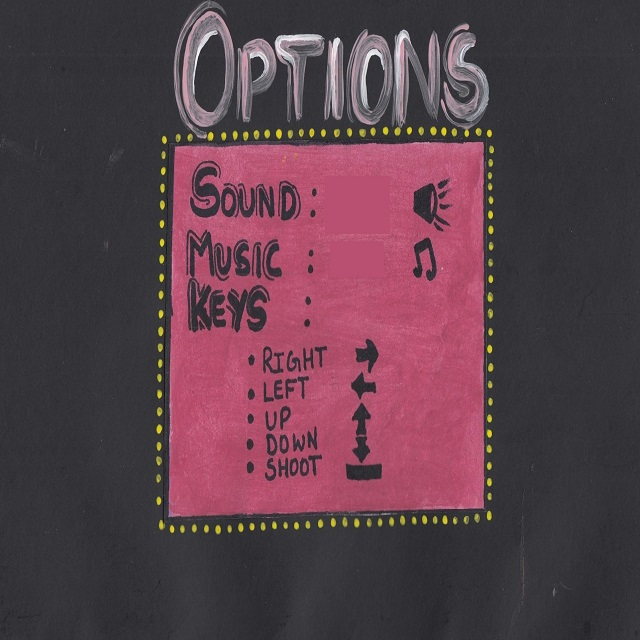 OPTIONS
SOUND :
MUSIC :
KEYS :
• RIGHT
• LEFT
• UP
• DOWN
• SHOOT